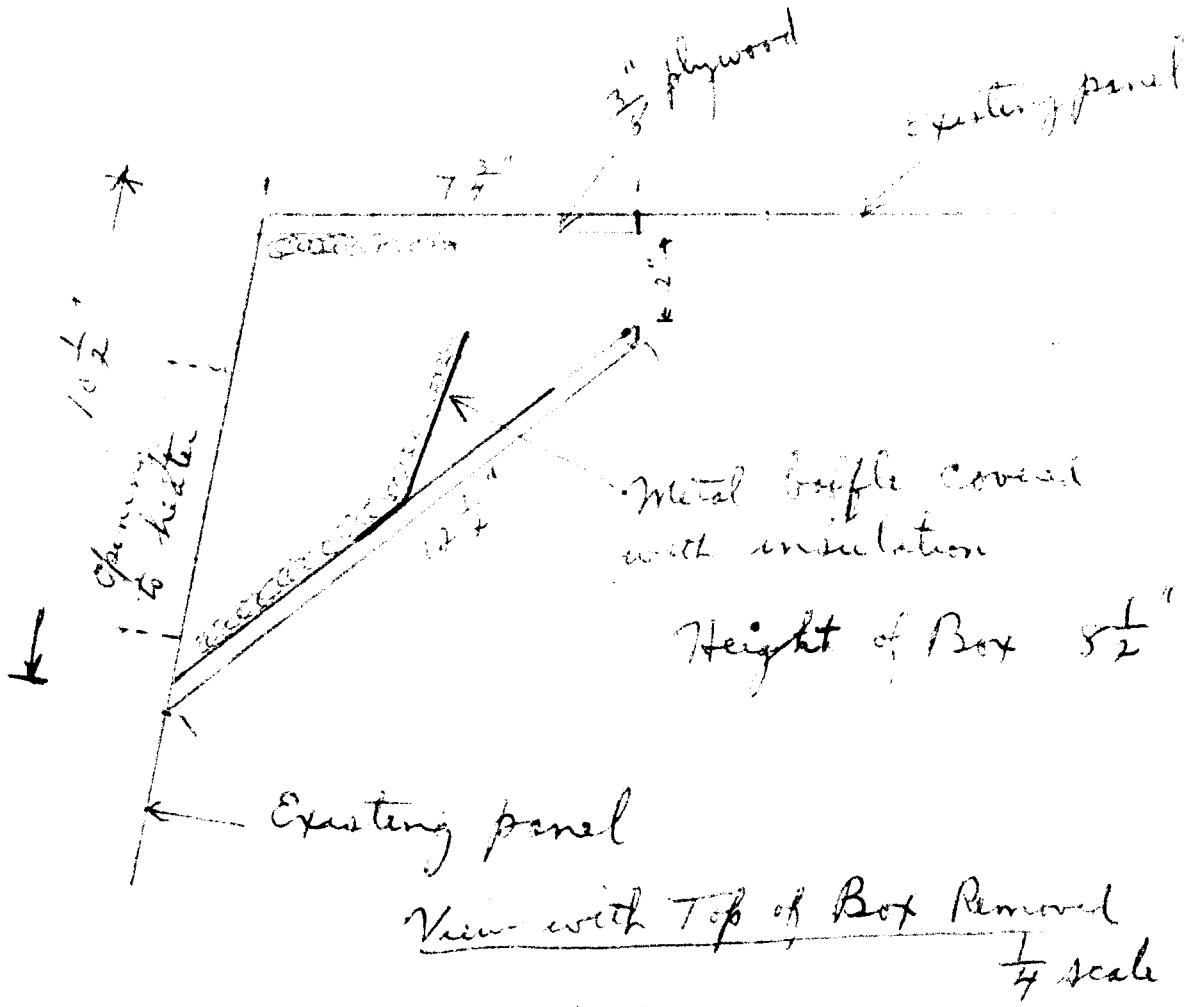 3/8" plywood
existing panel
7 3/4"
2"
10 1/2"
opening
to heater
12 1/4"
Metal baffle covered
with insulation
Height of Box 8 1/2"
Existing panel
View with Top of Box Removed
1/4 scale